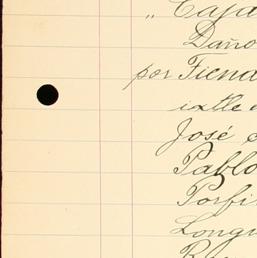 " Caja
Daño
por Fiend
ixtle
José
Pablo
Porfi
Longi